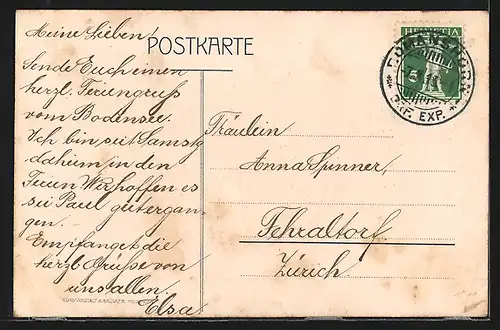 Meine Lieben!
POSTKARTE
HELVETIA
ROMANSHORN
BRF. EXP.
Sende Euch einen
herzl. Feriengruss
vom Bodensee.
Ich bin seit Samstg
dahium in den
Ferien Wir hoffen es
sei Paul gut ergan-
gen.
Empfanget die
herzl. Grüsse von
uns allen.
Elsa.
Fräulein
Anna Spinner,
Fehraltorf
Zürich